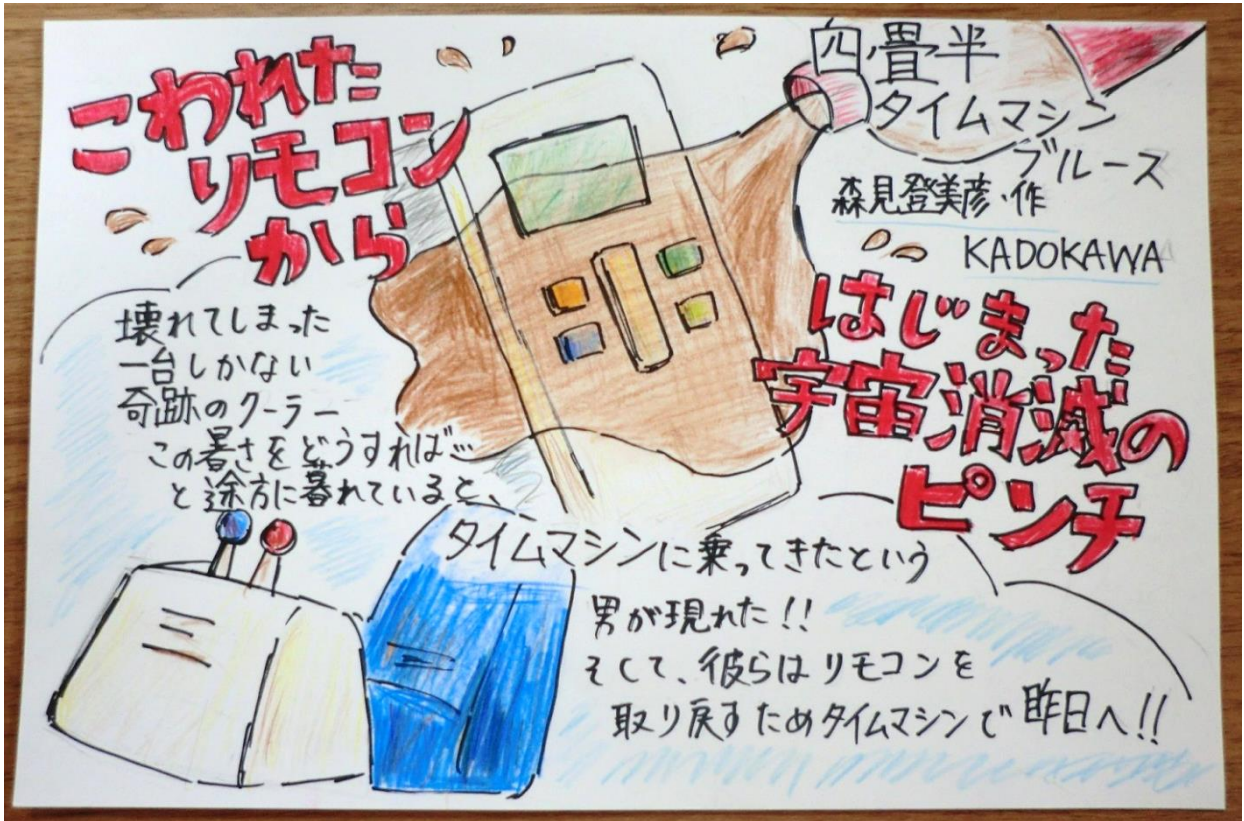 こわれた
リモコン
から
四畳半
タイムマシン
ブルース
森見登美彦・作
KADOKAWA
はじまった
宇宙消滅の
ピンチ
壊れてしまった
一台しかない
奇跡のクーラー
この暑さをどうすれば…
と途方に暮れていると、
タイムマシンに乗ってきたという
男が現れた!!
そして、彼らはリモコンを
取り戻すためタイムマシンで昨日へ!!